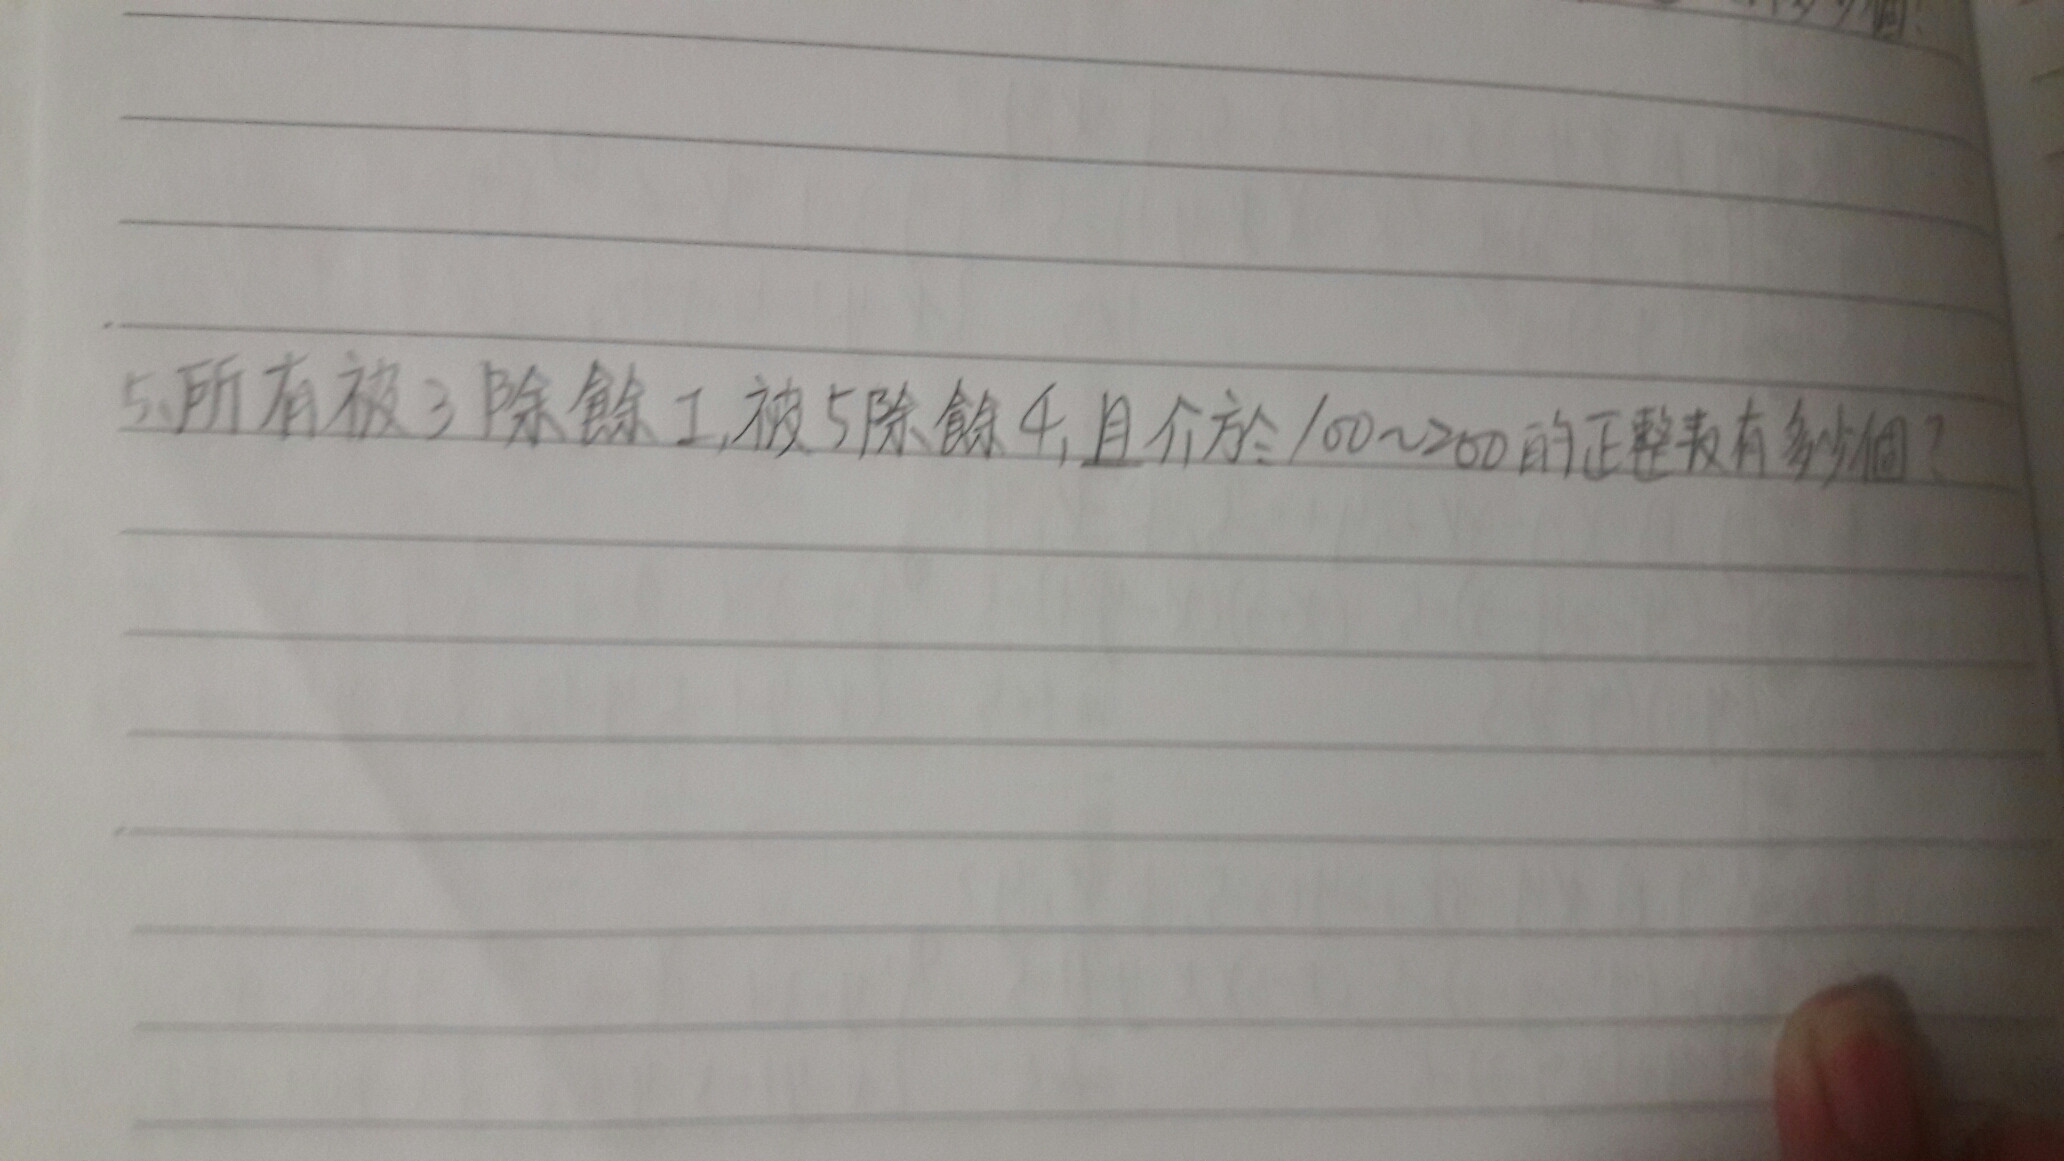 多少個?
5、所有被3除餘1,被5除餘4,且介於100~200的正整數有多少個?